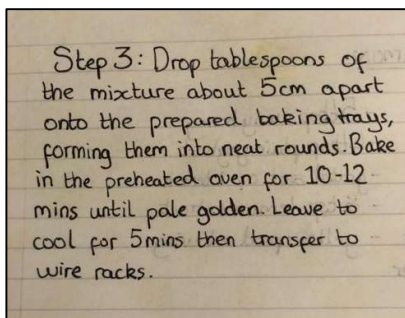 Step 3: Drop tablespoons of
the mixture about 5cm apart
onto the prepared baking trays,
forming them into neat rounds. Bake
in the preheated oven for 10-12
mins until pale golden. Leave to
cool for 5mins then transfer to
wire racks.